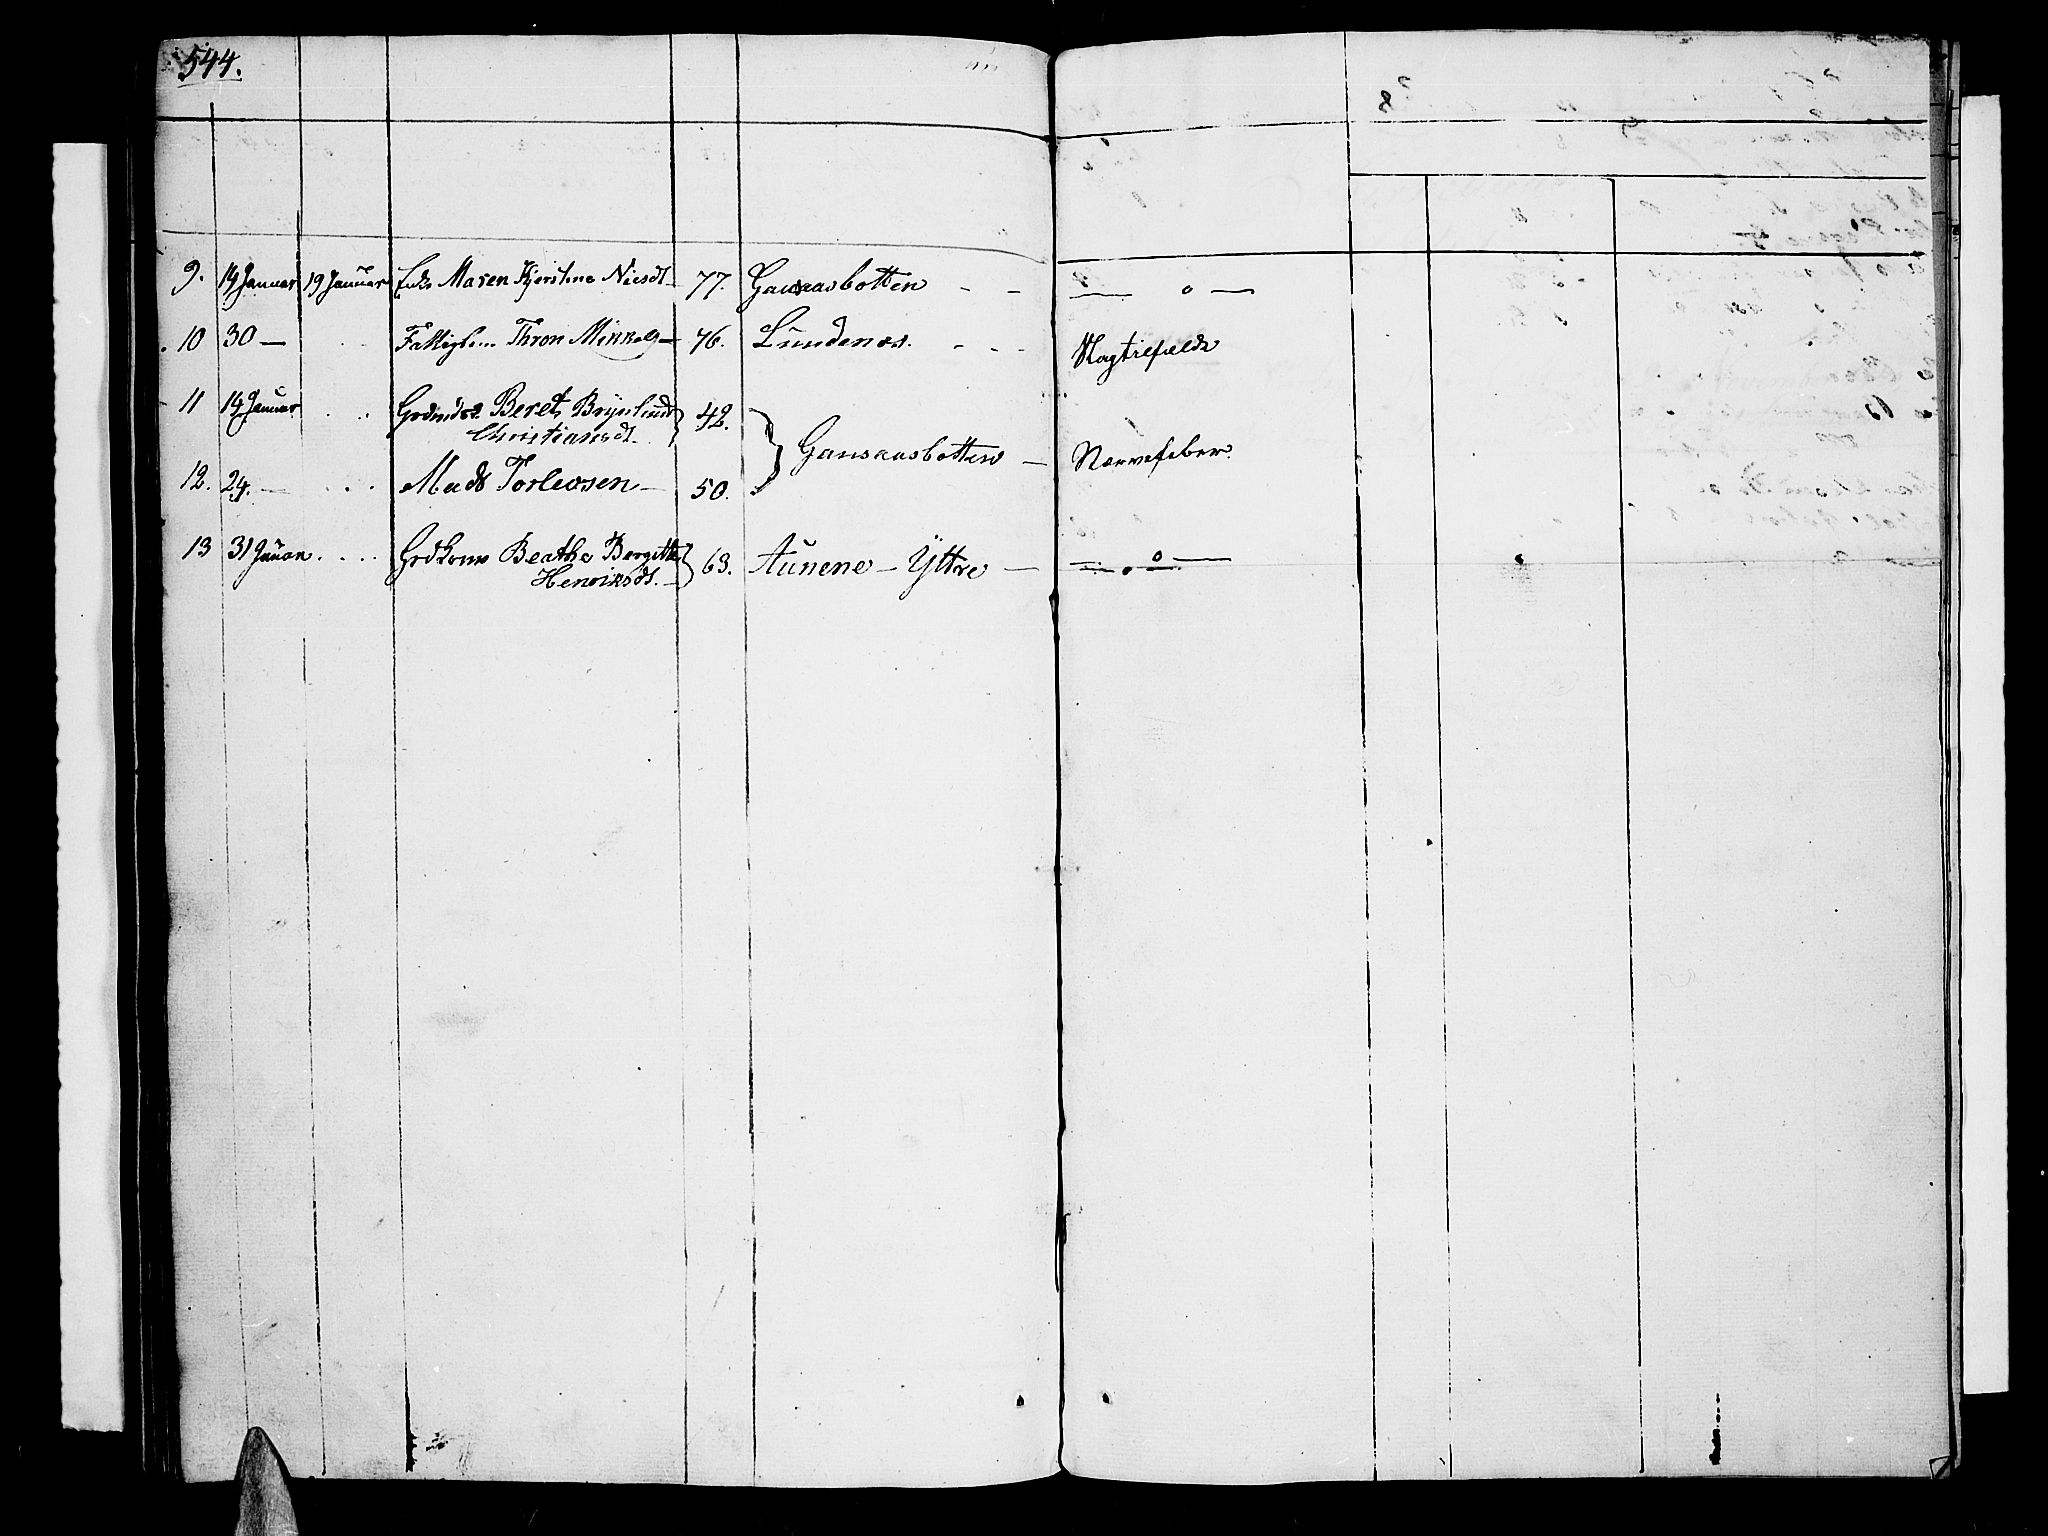 544.
9. 14 Januar 19 Januar Enke Maren Kjerstine Nielsdt 77. Gausaasbotten - - — o —
10 30 — Fattiglem Thron Mikkels— 76. Lundenes. - - - Slagtilfælde
11 14 Januar . . Grdmdsk. Beret Brynhild 42.
Christiansdt.
Gansaasbotten — Nervefeber.
12. 24. — . . . Mads Torleosen — 50.
13 31 Januar . . . Grdkone Beathe Bergitte 63. Aunene — Yttre — — o —
Henriksdt. —